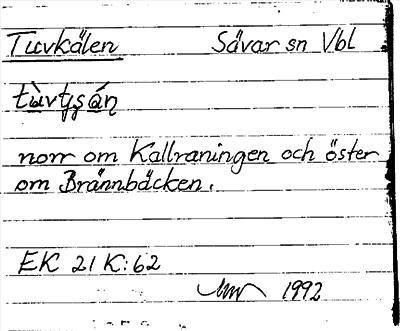 Tuvkälen Sävar sn Vbl
norr om Kallraningen och öster
om Brännbäcken.
EK 21 K:62
1992